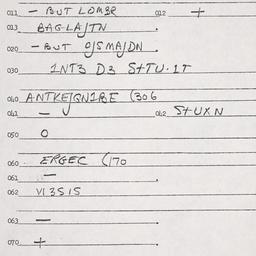 011 — BUT LOMBR 012 +
013 BAGLA/TN
020 — BUT O/SMA/DN
030 1NT3 D3 S+TU.1T
040 ANTKEIGN1BE (306
041 — 042 S+UXN
050 O
060 ERGEC (170
061 —
062 VI3S15
063 —
070 +